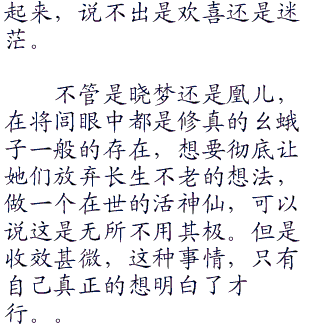 起来，说不出是欢喜还是迷
茫。
不管是晓梦还是凰儿，
在将闾眼中都是修真的幺蛾
子一般的存在，想要彻底让
她们放弃长生不老的想法，
做一个在世的活神仙，可以
说这是无所不用其极。但是
收效甚微，这种事情，只有
自己真正的想明白了才
行。。